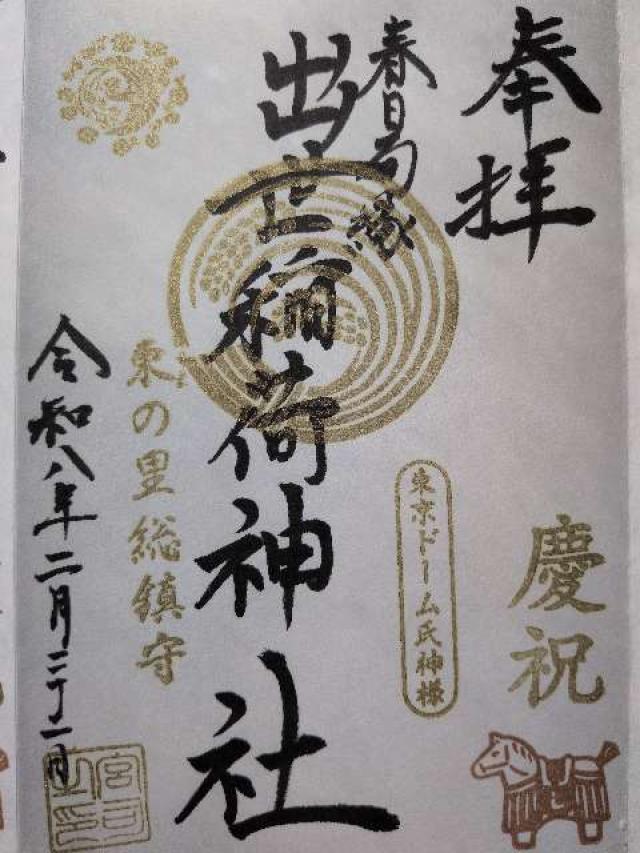 奉拝
慶祝
東京ドーム氏神様
春日局縁
出世稲荷神社
東の里総鎮守
令和八年二月二十一日
宮司之印